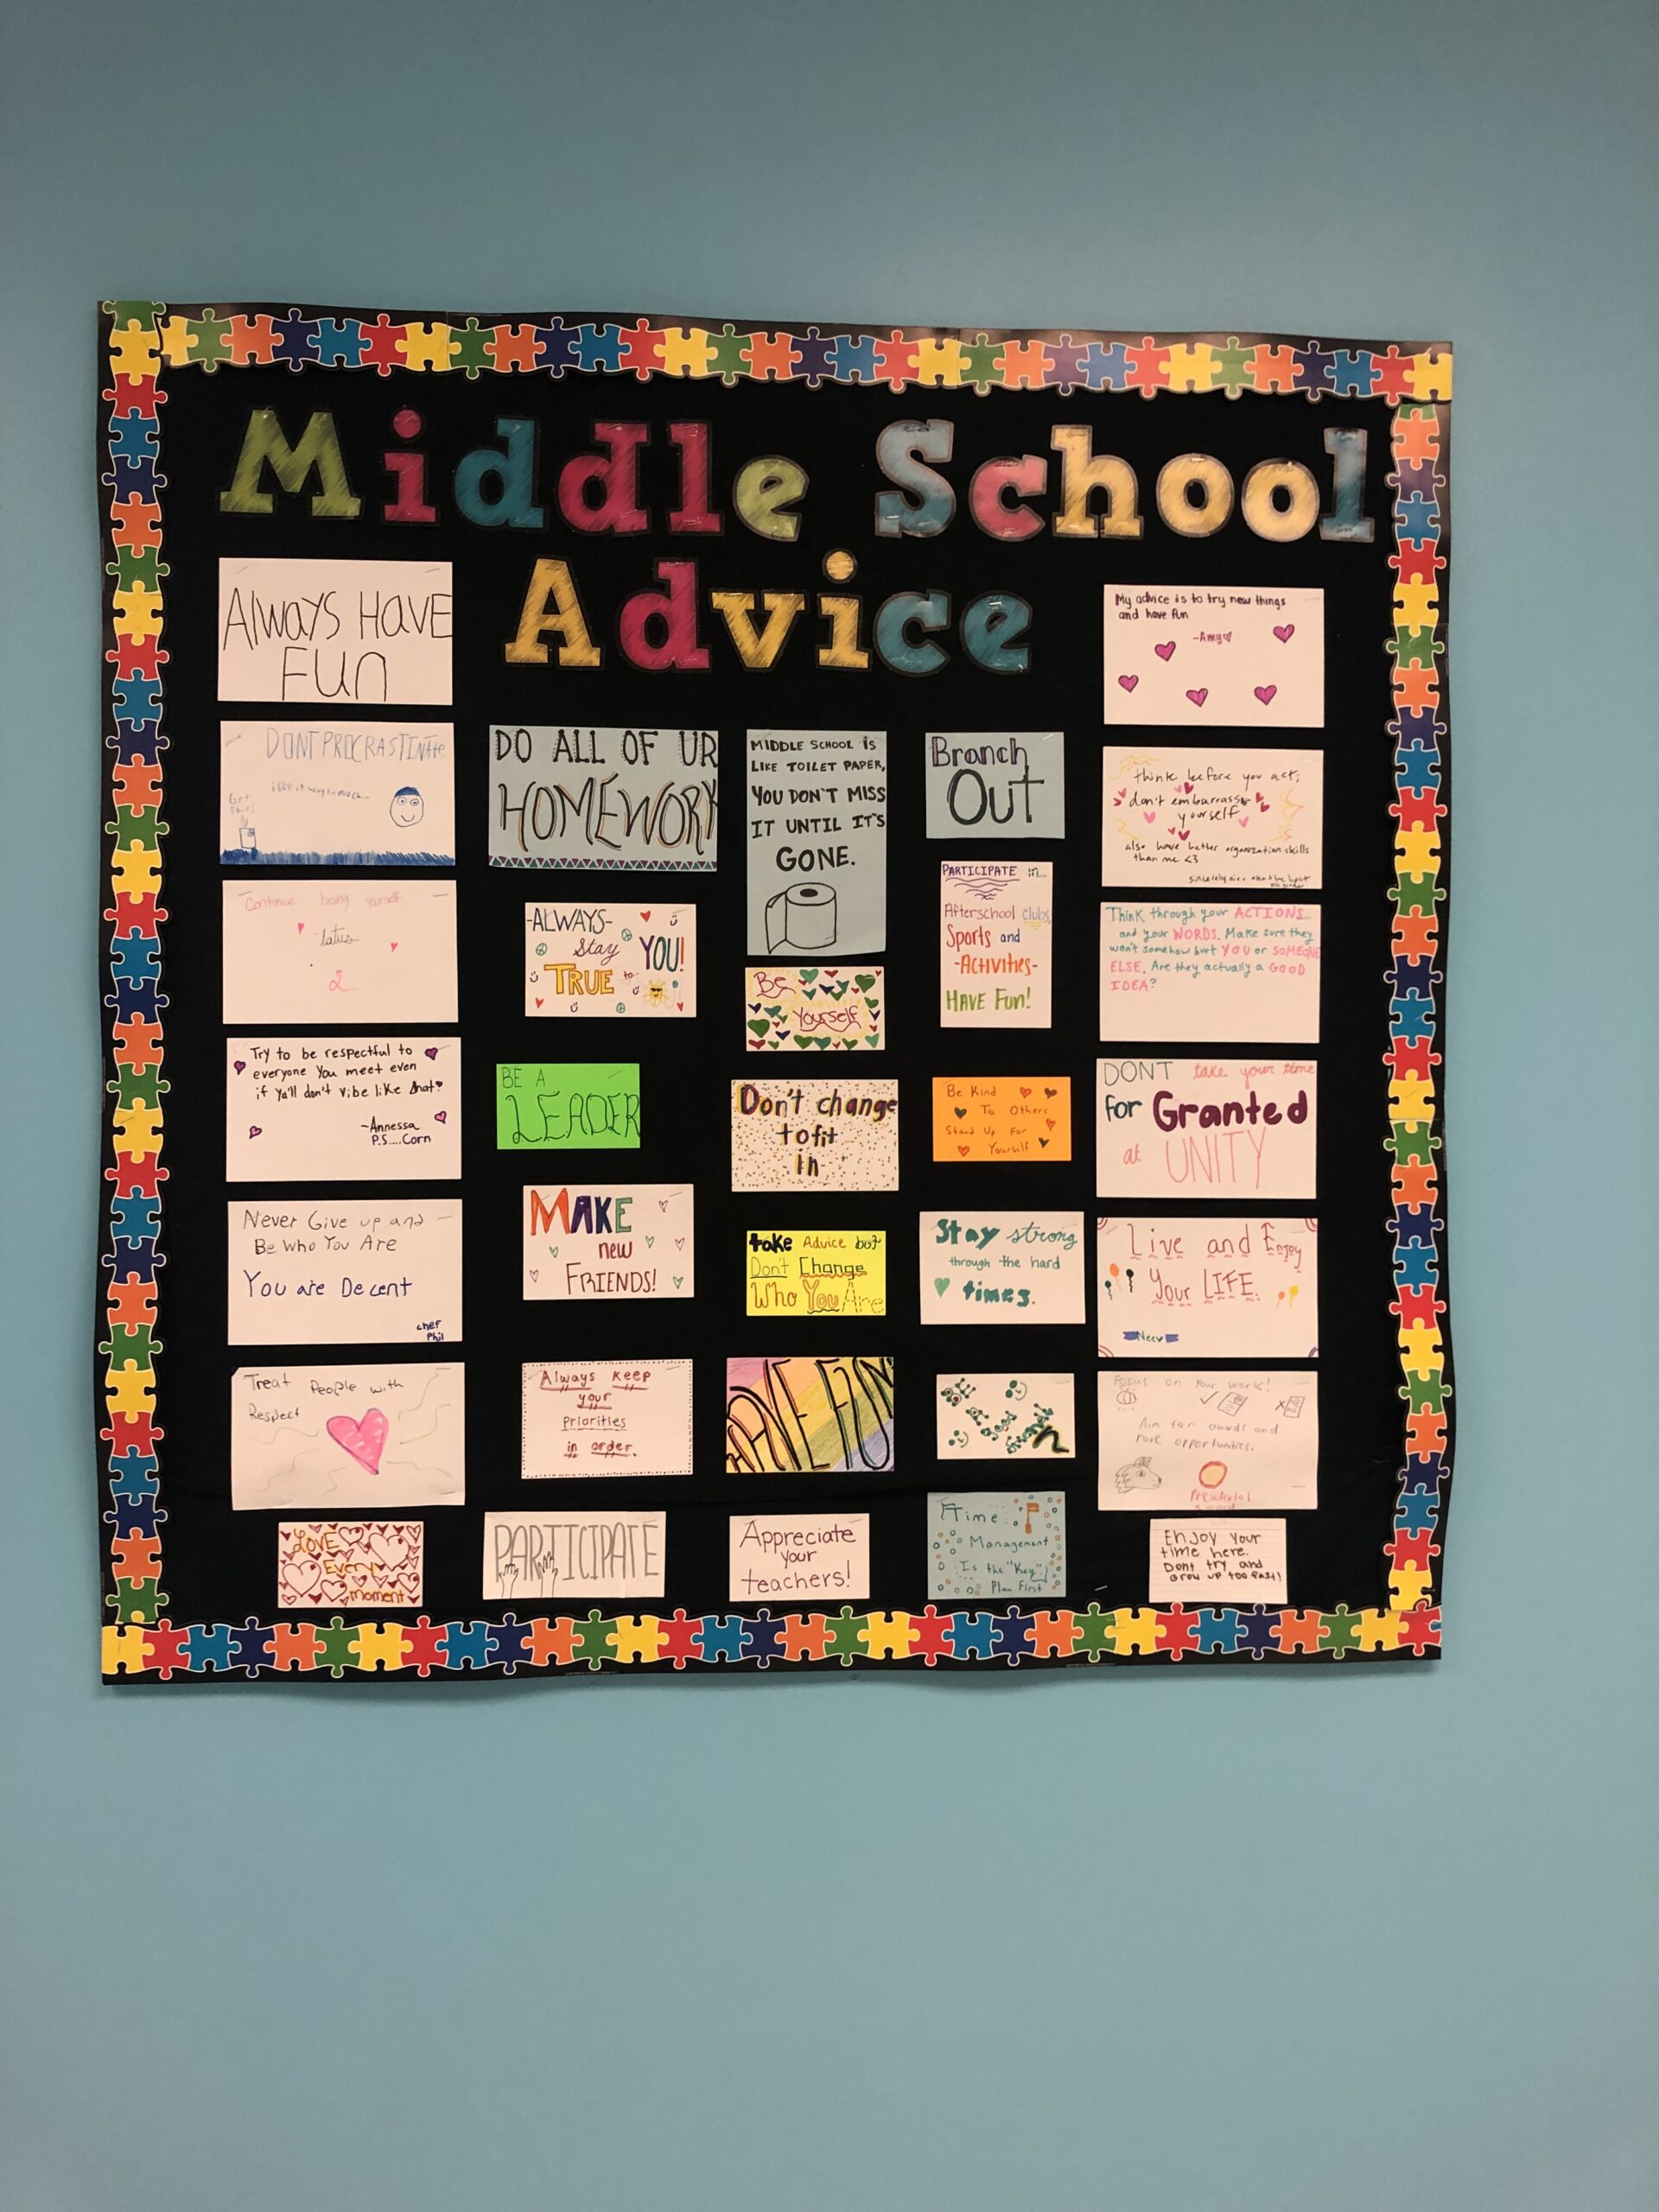 Middle School
Advice
Always Have
Fun
DONT PROCRASTINATE
Get
Continue being yourself
Try to be respectful to
everyone You meet even
if ya'll don't vibe like that?
~Annessa
P.S....Corn
Never Give up and
Be Who You Are
You are Decent
chef
Phil
Treat People with
Respect
LOVE
Every
moment
DO ALL OF UR
HOMEWORK
-ALWAYS-
stay
TRUE to YOU!
BE A
LEADER
MAKE
new
FRIENDS!
Always keep
your
Priorities
in order.
PARTICIPATE
MIDDLE SCHOOL IS
LIKE TOILET PAPER,
YOU DON'T MISS
IT UNTIL IT'S
GONE.
Be
Yourself
Don't change
to fit
in
take Advice but
Don't Change
Who You Are
HAVE FUN
Appreciate
your
teachers!
Branch
Out
PARTICIPATE in...
Afterschool clubs,
Sports and
-ACTIVITIES-
HAVE Fun!
Be Kind
To Others
Stand Up For
Yourself
Stay strong
through the hard
times.
Time
Management
Is the "Key"!
Plan First
My advice is to try new things
and have fun
-Amy
think before you act;
don't embarrass
yourself
also have better organization skills
than me <3
Think through your ACTIONS
and your WORDS. Make sure they
won't somehow hurt YOU or SOMEONE
ELSE. Are they actually a GOOD
IDEA?
DONT take your time
for Granted
at UNITY
Live and Enjoy
Your LIFE.
Neev
Focus on your work!
Aim for awards and
rare opportunities.
Presidential
Enjoy your
time here.
Dont try and
Grow up too fast!